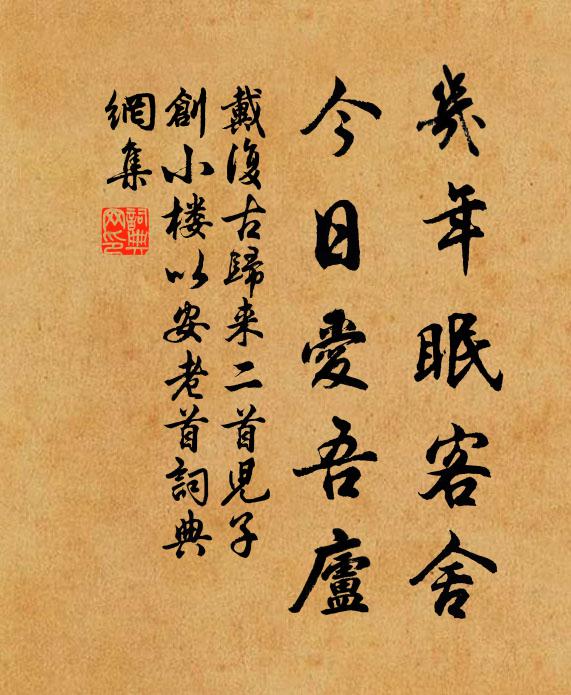 幾年眠客舍
今日愛吾廬
戴復古歸来二首兒子
創小楼以安老首詞典
網集
詞典网印